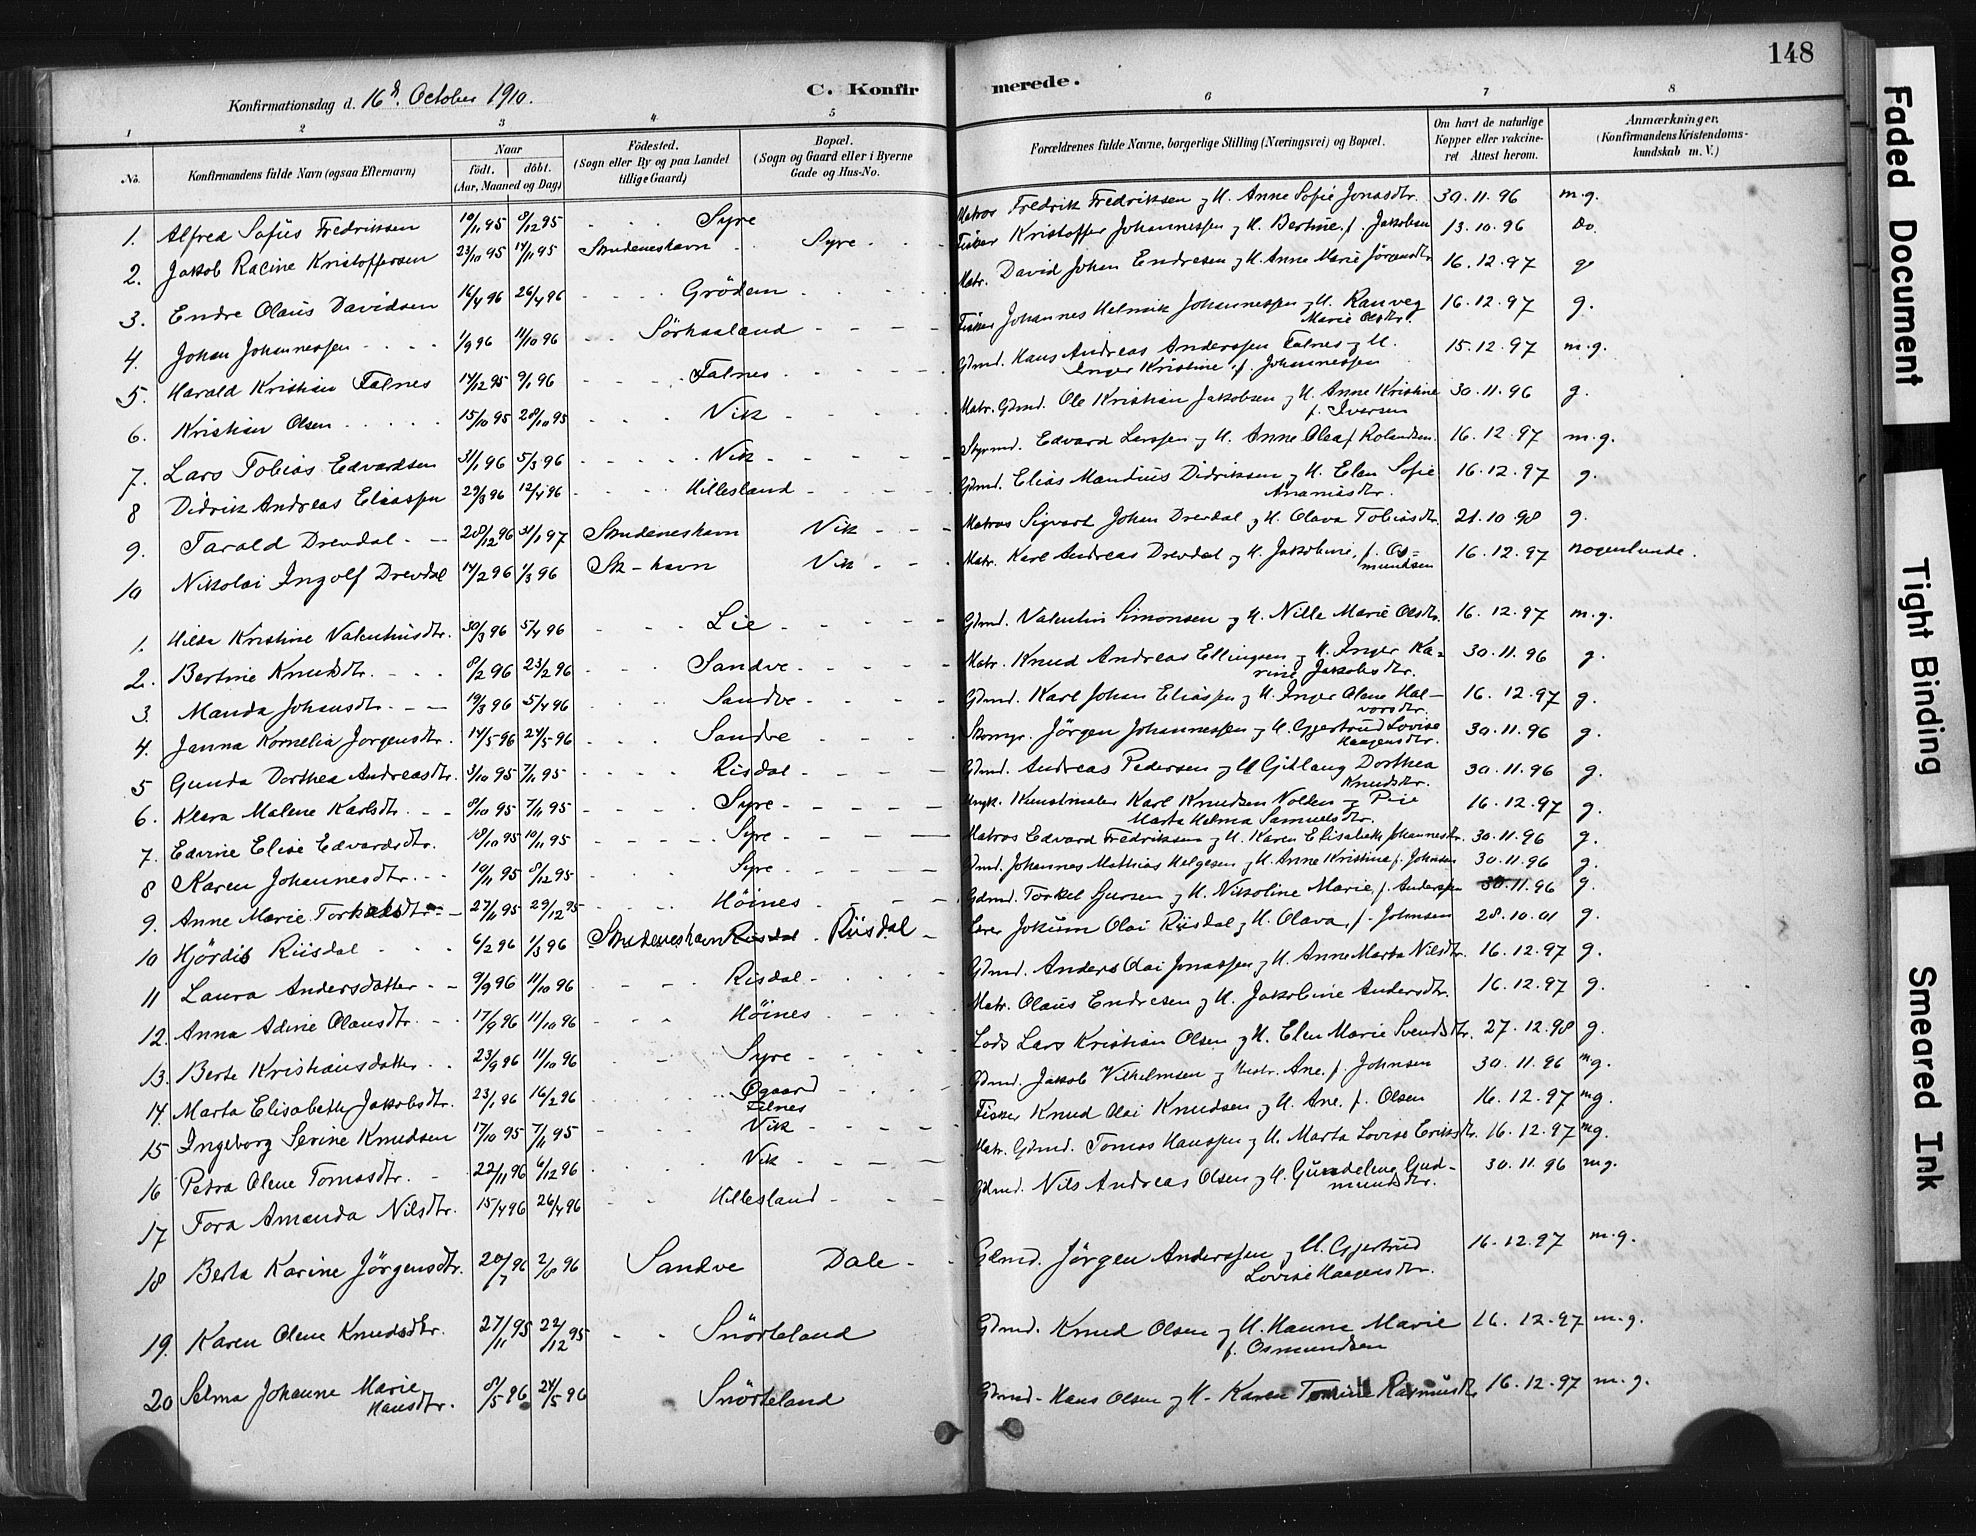 148
Konfirmationsdag d. 16de October 1910.
C. Konfirmerede.
1 2 3 4 5 6 7 8
No. Konfirmandens fulde Navn (ogsaa Efternavn) Naar födt. döbt. (Aar, Maaned og Dag) Födested. (Sogn eller By og paa Landet tillige Gaard) Bopæl. (Sogn og Gaard eller i Byerne Gade og Hus-No. Forældrenes fulde Navne, borgerlige Stilling (Næringsvei) og Bopæl. Om havt de naturlige Kopper eller vakcineret Attest herom. Anmærkninger. (Konfirmandens Kristendomskundskab m. V.)
1. Alfred Sofus Fredriksen 10/11 95 8/12 95 Syre Matros Fredrik Fredriksen og H. Anne Sofie Jonasdtr. 30.11.96 m.g.
2. Jakob Racine Kristoffersen 23/10 95 17/11 95 Skudeneshavn Syre Fisker Kristoffer Johannessen og H. Bertine, f. Jakobsen 13.10.96 Do.
3. Endre Olaus Davidsen 16/4 96 26/4 96 Grödem Matr. David Johan Endresen og H. Anne Marie Jörgensdtr 16.12.97 g.
4. Johan Johannessen 1/9 96 11/10 96 Sörhaaland Fisker Johannes Helmik Johannessen og H. Ranveg Marie Olsdtr. 16.12.97 g.
5. Harald Kristian Falnes 17/12 95 9/1 96 Falnes Gdmd. Hans Andreas Anderssen Falnes og H. Inger Kristine, f. Johannessen 15.12.97 m.g.
6. Kristian Olsen 15/10 95 20/10 95 Vik Matr. Gdmd. Ole Kristian Jakobsen og H. Anne Kristine f. Iversen 30.11.96 g.
7. Lars Tobias Edvardsen 31/1 96 5/3 96 Vik Styrmd. Edvard Larssen og H. Anne Olea f. Rolandsen. 16.12.97 m.g.
8 Didrik Andreas Eliassen 29/3 96 12/4 96 Hillesland Gdmd. Elias Mandius Didriksen og H. Elen Sofie Ananiasdtr. 16.12.97 g.
9. Tarald Drevdal 28/12 96 31/1 97 Skudeneshavn Vik Matros Sigvart Johan Drevdal og H. Olava Tobiasdtr. 21.10.98 g.
10 Nikolai Ingolf Drevdal 14/2 96 1/3 96 Sk-havn Vik Matr. Karl Andreas Drevdal og H. Jakobine, f. Osmundsen 16.12.97 nogenlunde.
1. Hilda Kristine Valentinsdtr. 30/3 96 5/4 96 Lie Gdmd. Valentin Simonsen og H. Nille Marie Olsdtr. 16.12.97 m.g.
2. Bertine Knutsdtr. 8/2 96 23/2 96 Sandve Matr. Knud Andreas Ellingsen og H. Inger Karine Jakobsdtr. 30.11.96 g.
3. Manda Johansdtr. 19/3 96 5/4 96 Sandve Gdmd. Karl Johan Eliassen og H. Inger Olene Halvorsdtr. 16.12.97 g.
4. Janna Kornelia Jorgensdtr. 14/5 96 24/5 96 Sandve Skomgr. Jörgen Johannessen og H. Gjertrud Lovise Haagensdtr. 30.11.96 g.
5 Gunda Dorthea Andreasdtr. 3/10 95 7/11 95 Risdal Gdmd. Andreas Pedersen og H Gitlaug Dorthea Knudsdtr. 30.11.96 g.
6. Klara Malene Karlsdtr. 8/10 95 7/11 95 Syre Ungk. Kunstmaler Karl Knudsen og Pie Marta Helma Samuelsdtr. 16.12.97 g.
7. Edvine Elise Edvardsdtr. 18/10 95 10/11 95 Syre Matros Edvard Fredriksen og H. Karen Elisabeth Johannesdtr. 30.11.96 g.
8 Karen Johannesdtr. 19/11 95 8/12 95 Syre Gdmd. Johannes Mathias Helgesen og H. Anne Kristine f. Johnsen 30.11.96 g.
9. Anne Marie Torkelsdtr. 27/11 95 29/12 95 Höines Gdmd. Torkel Gursen og H. Nikoline Marie, f. Anderssen 30.11.96 g.
10 Hjördis Riisdal 6/2 96 1/3 96 Skudeneshavn Riisdal Riisdal Lærer Jokum Olai Riisdal og H. Olava, f. Johnsen 28.10.01 g.
11 Laura Andersdatter 9/9 96 11/10 96 Risdal Gdmd. Anders Olai Jonassen og H. Anne Marta Nilsdtr. 16.12.97 g.
12. Anna Adine Olausdtr. 17/9 96 11/10 96 Höines Matr. Olaus Endresen og H. Jakobine Andersdtr. 16.12.97 g.
13. Berte Kristiansdatter 23/9 96 11/10 96 Syre Lods Lars Kristian Olsen og H. Elen Marie Svendsdtr. 27.12.98 g.
14. Marta Elisabeth Jakobsdtr. 23/1 96 16/2 96 Øgaard Falnes Gdmd. Jakob Vilhelmsen og Hustr. Ane, f. Johnsen 30.11.96 mg.
15 Ingeborg Serine Knudsen 17/10 95 7/11 95 Vik Fisker Knud Olai Knudsen og H. Ane, f. Olsen 16.12.97 mg.
16 Petra Olene Tomasdtr. 22/11 96 6/12 96 Vik Matr. Gdmd. Tomas Hanssen og H. Marta Lovise Eriksdtr. 16.12.97 mg.
17 Tora Amanda Nilsdtr. 15/4 96 26/4 96 Hillesland Gdmd. Nils Andreas Olsen og H. Gundeline Gudmundsdtr. 30.11.96 m.g.
18 Berta Karine Jörgensdtr. 20/7 96 2/8 96 Sandve Dale Gdmd. Jörgen Anderssen og H. Gjertrud Lovise Haagensdtr. 16.12.97 m.g.
19. Karen Olene Knudsdtr. 27/11 95 22/12 95 Snörteland Gdmd. Knud Olsen og H. Hanna Marie f. Osmundsen 16.12.97 m.g.
20 Selma Johanne Marie Hansdtr. 8/5 96 24/5 96 Snörteland Gdmd. Hans Olsen og H. Karen Tomine Rasmusdtr 16.12.97 m.g.
Faded Document
Tight Binding
Smeared Ink